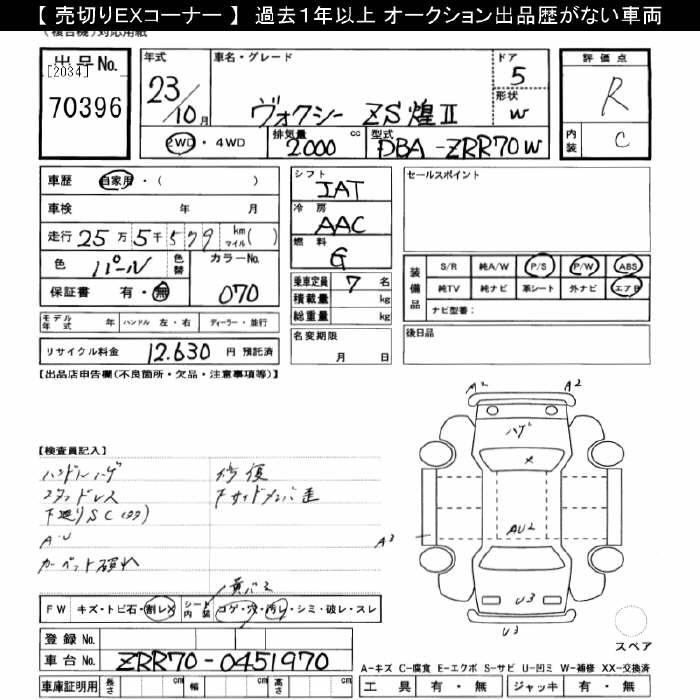 【 売切りEXコーナー 】 過去1年以上 オークション出品歴がない車両
(複合機)対応用紙
出品No.
[2034]
70396
年式
23/10月
車名・グレード
ヴォクシー ZS煌Ⅱ
ドア
5
形状
W
2WD・4WD
排気量 cc
2.000
型式
DBA-ZRR70W
評価点
R
内装
C
車歴 自家用・( )
車検 年 月
走行 25万5千579 km マイル( )
色 パール 色替
カラーNo.
070
保証書 有・無
シフト
IAT
冷房
AAC
燃料
G
乗車定員 7 名
積載量 kg
総重量 kg
セールスポイント
装備品
S/R 純A/W P/S P/W ABS
純TV 純ナビ 革シート 外ナビ エアB
ナビ型番:
モデル年式 年 ハンドル 左・右 ディーラー・並行
名変期限
月 日
後日品
リサイクル料金 12.630 円 預託済
【出品店申告欄(不良箇所・欠品・注意事項等)】
A2 A2
ハゲ
×
【検査員記入】
ハンドルハゲ
スタッドレス
下廻りSC
A・U
カーペット
修復
AU2
A3
U3
U3
FW キズ・トビ石・割レX シート内装 コゲ・穴・汚レ・シミ・破レ・スレ
登録No.
車台No. ZRR70-0451970
スペア
A-キズ C-腐食 E-エクボ S-サビ U-凹ミ W-補修 XX-交換済
車庫証明用 長さ cm 幅 cm 高さ cm
工具 有・無 ジャッキ 有・無